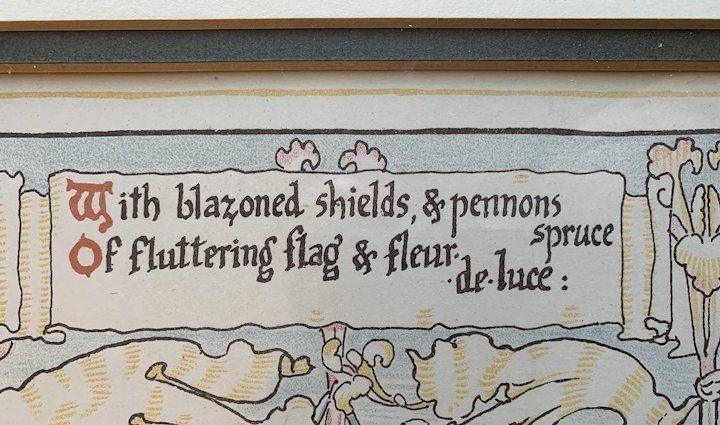 With blazoned shields, & pennons
spruce
Of fluttering flag & fleur·
·de·luce: